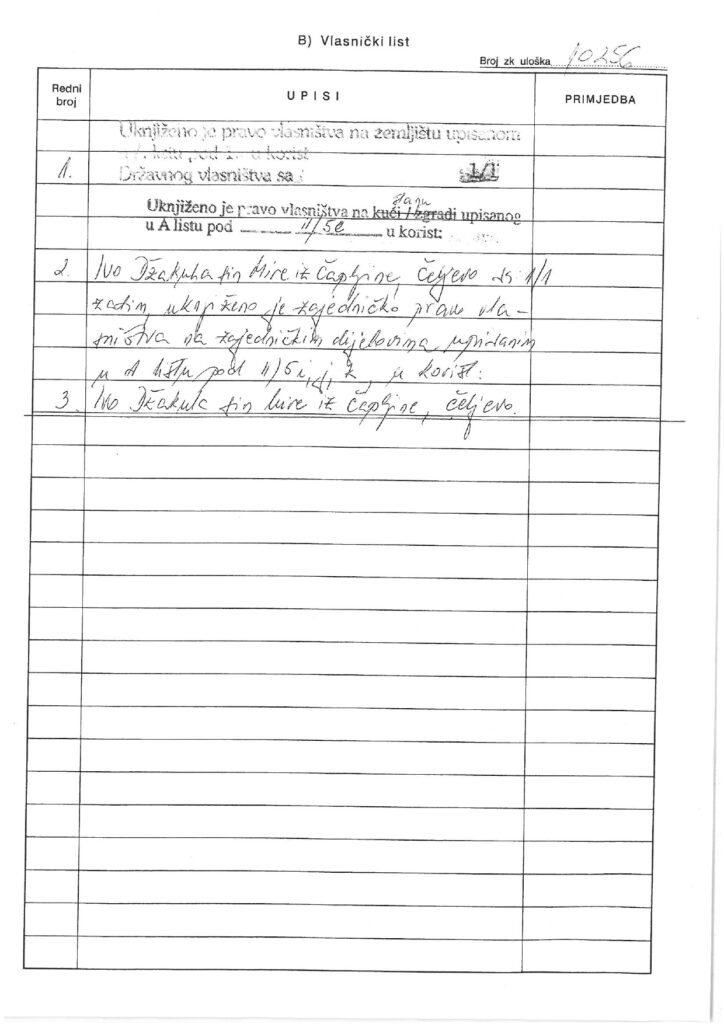 B) Vlasnički list
Broj zk uloška 10256
Redni broj
UPISI
PRIMJEDBA
Uknjiženo je pravo vlasništva na zemljištu upisanom
u korist
1. Državnog vlasništva sa 1/1
stanu
Uknjiženo je pravo vlasništva na kući / zgradi upisanog
u A listu pod II/5e u korist:
2. Ivo Džakula sin Mire iz Čapljine, Čeljevo sa 1/1
zatim, uknjiženo je zajedničko pravo vla-
sništva na zajedničkim dijelovima upisanim
u A listu pod II/5 i, j, k, u korist:
3. Ivo Džakula sin Mire iz Čapljine, Čeljevo.